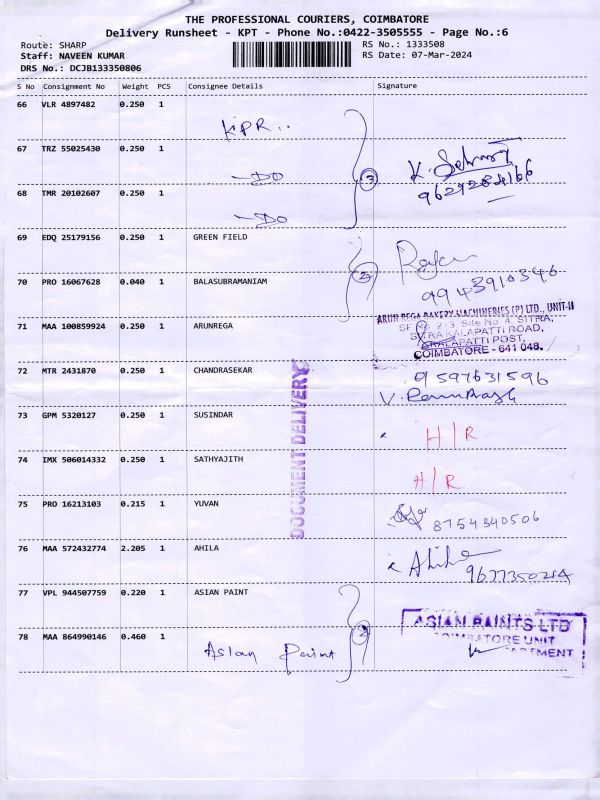 THE PROFESSIONAL COURIERS, COIMBATORE
Delivery Runsheet - KPT - Phone No.:0422-3505555 - Page No.:6
Route: SHARP
Staff: NAVEEN KUMAR
DRS No.: DCJB133350806
RS No.: 1333508
RS Date: 07-Mar-2024
S No Consignment No Weight PCS Consignee Details Signature
66 VLR 4897482 0.250 1 KPR..
67 TRZ 55025430 0.250 1 -DO
68 TMR 20102607 0.250 1 -DO
3
K.
9629284166
69 EDQ 25179156 0.250 1 GREEN FIELD
70 PRO 16067628 0.040 1 BALASUBRAMANIAM
2
9943910346
71 MAA 100859924 0.250 1 ARUNREGA
ARUN REGA BAKERY MACHINERIES (P) LTD., UNIT-II
SF No. 2/3, Site No. 4, SITRA,
SITRA KALAPATTI ROAD,
KALAPATTI POST,
COIMBATORE - 641 048.
72 MTR 2431870 0.250 1 CHANDRASEKAR 9597631596
V.
73 GPM 5320127 0.250 1 SUSINDAR H/R
74 IMX 506014332 0.250 1 SATHYAJITH H/R
75 PRO 16213103 0.215 1 YUVAN 8754340506
76 MAA 572432774 2.205 1 AHILA Ahila
9677350214
DOCUMENT DELIVERY
77 VPL 944507759 0.220 1 ASIAN PAINT
78 MAA 864990146 0.460 1 Asian Paint
2
ASIAN PAINTS LTD
COIMBATORE UNIT